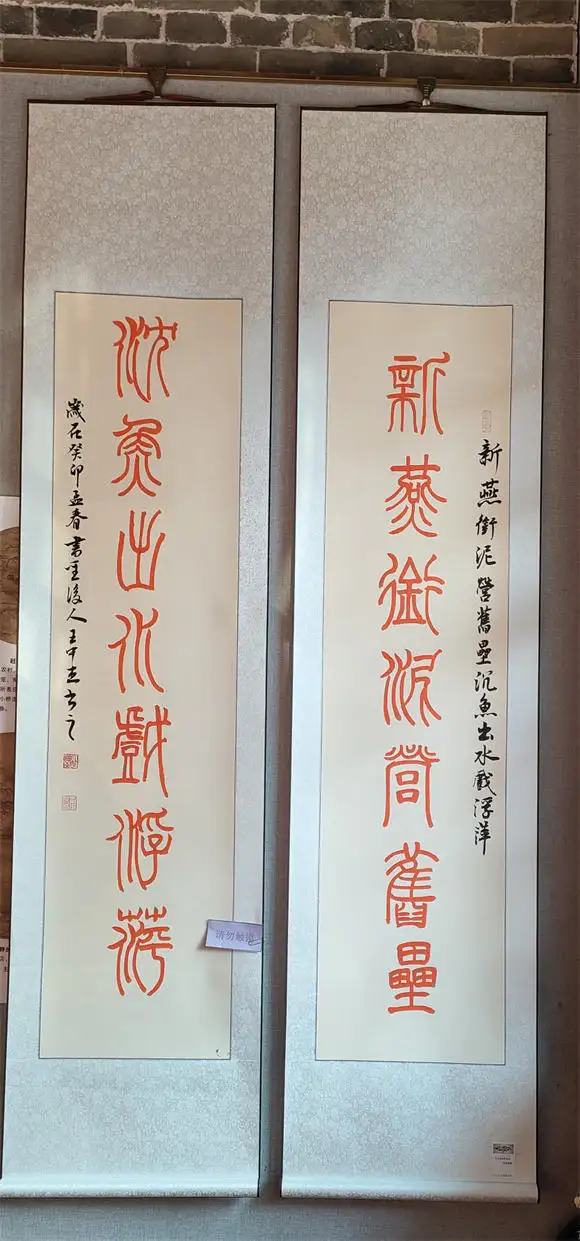 新燕銜泥營舊壘
新燕銜泥營舊壘沉魚出水戲浮萍
沈魚出水戲浮萍
歲在癸卯孟春書聖後人王中志書之
请勿触